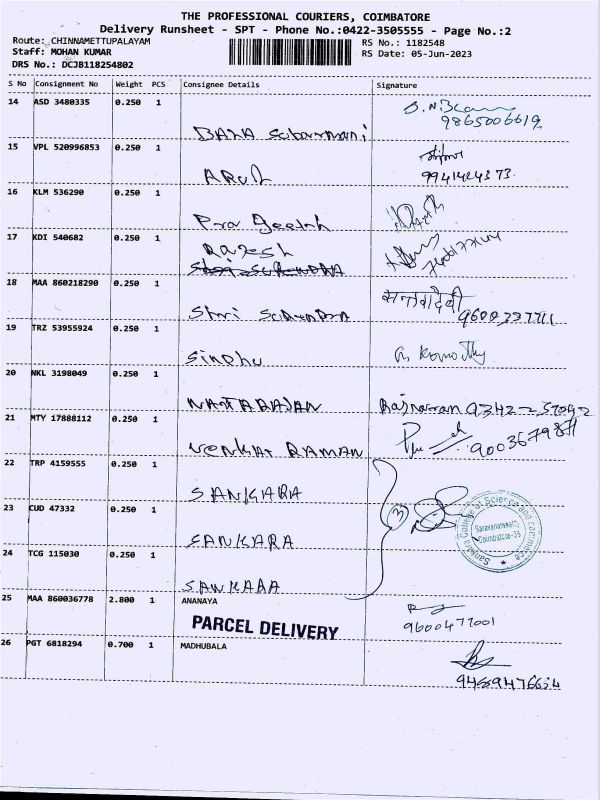 THE PROFESSIONAL COURIERS, COIMBATORE
Delivery Runsheet - SPT - Phone No.:0422-3505555 - Page No.:2
Route: CHINNAMETTUPALAYAM RS No.: 1182548
Staff: MOHAN KUMAR RS Date: 05-Jun-2023
DRS No.: DCJB118254802
S No Consignment No Weight PCS Consignee Details Signature
14 ASD 3480335 0.250 1
9865006619
15 VPL 520996853 0.250 1
ARUL
16 KLM 536290 0.250 1
17 KDI 540682 0.250 1
Rajesh
18 MAA 860218290 0.250 1
Shri
19 TRZ 53955924 0.250 1
Sindhu
20 NKL 3198049 0.250 1
NATARAJAN
21 MTY 17888112 0.250 1
VENKAT RAMAN
22 TRP 4159555 0.250 1
SANKARA
23 CUD 47332 0.250 1 3
SANKARA
24 TCG 115030 0.250 1
SANKARA
Sankara College of Science and commerce
Saravanampatty
Coimbatore-35
25 MAA 860036778 2.800 1 ANANAYA
PARCEL DELIVERY 9600477001
26 PGT 6818294 0.700 1 MADHUBALA